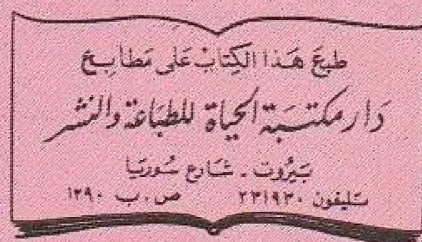 طبعَ هَذا الكِتابُ عَلى مَطابِع
دَار مكتبَة الحيَاة للطبَاعَة والنشر
بَيرُوت - شَارع سُوريَا
تليفون ٢٢١٩٣٠ ص.ب ١٣٩٠